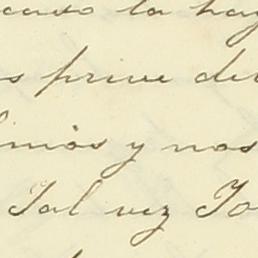 caso la hay
s prive del
imos y nos
Tal vez To